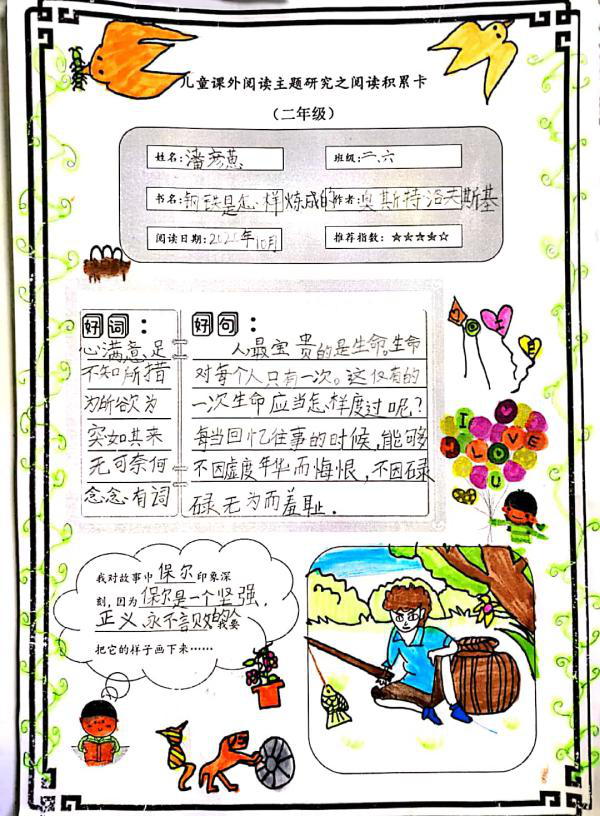 儿童课外阅读主题研究之阅读积累卡
（二年级）
姓名:潘彦蒽 班级:二、六
书名:钢铁是怎样炼成的 作者:奥斯特洛夫斯基
阅读日期:2020年10月 推荐指数:★★★★★
好词：
心满意足
不知所措
为所欲为
突如其来
无可奈何
念念有词
好句：
人最宝贵的是生命。生命
对每个人只有一次。这仅有的
一次生命应当怎样度过呢？
每当回忆往事的时候,能够
不因虚度年华而悔恨,不因碌
碌无为而羞耻.
I
LOVE
U
我对故事中保尔印象深
刻,因为保尔是一个坚强,
正义、永不言败的人我要
把它的样子画下来……